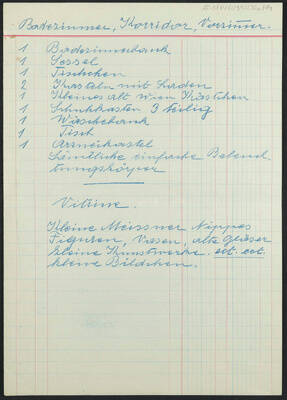 Badezimmer, Korridor, Vorzimmer.
1 Badezimmerbank
1 Sessel
1 Tischchen
2 Kasteln mit Laden
1 Kleines alt wien Kästchen
1 Schuhkasten 3 teilig
1 Wäschebank
1 Tisch
1 Arzneikastel
Sämtliche einfache Beleuch-
tungskörper
Vitrine.
Kleine Meissner Nippes
Figuren, Vasen, alte Gläser
kleine Kunstwerke. ect. ect.
kleine Bildchen.